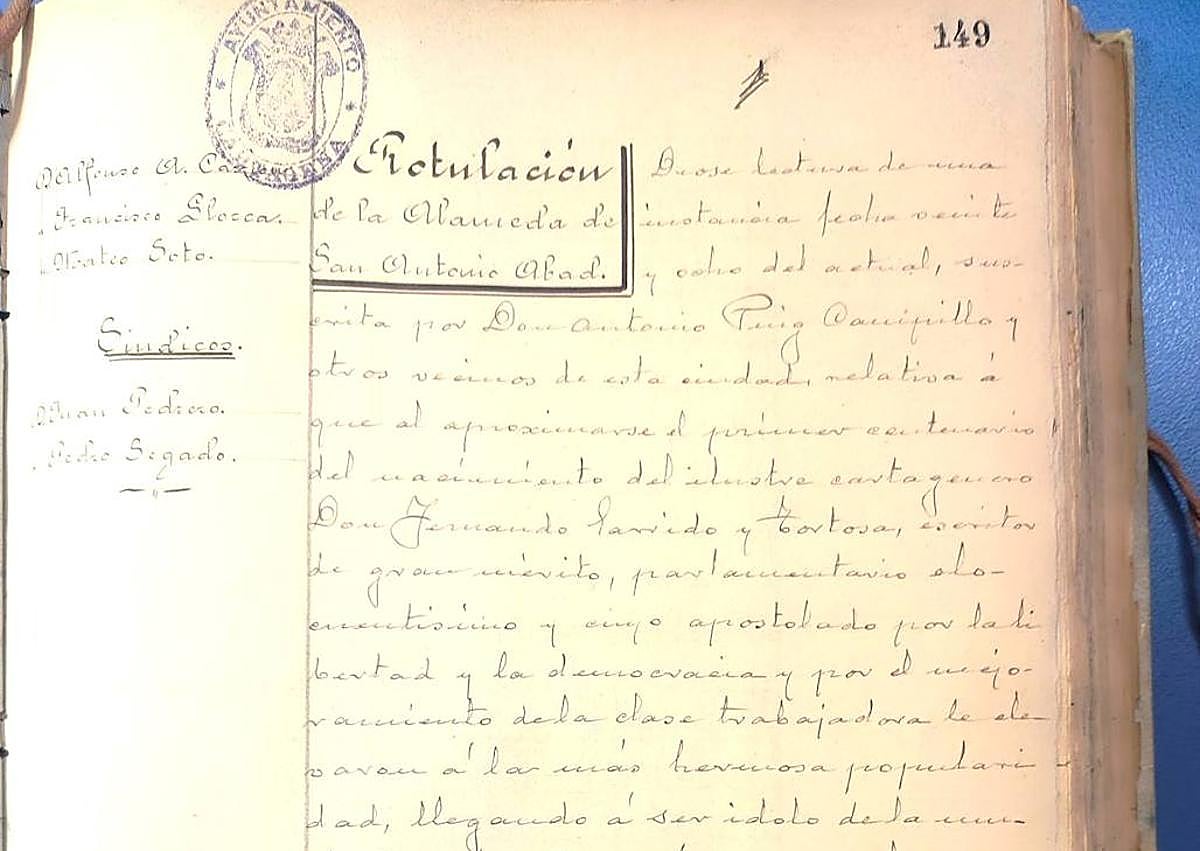 149
AYUNTAMIENTO
CARTAGENA
D Alfonso A. Carrión
" Francisco Llorca.
" Mateo Soto.
Síndicos.
D Juan Pedrero.
" Pedro Segado.
Rotulación
de la Alameda de
San Antonio Abad.
Diose lectura de una
instancia fecha veinte
y ocho del actual, sus-
crita por Don Antonio Puig Campillo y
otros vecinos de esta ciudad, relativa á
que al aproximarse el primer centenario
del nacimiento del ilustre cartagenero
Don Fernando Garrido y Tortosa, escritor
de gran mérito, parlamentario elo-
cuentísimo y cuyo apostolado por la li
bertad y la democracia y por el mejo-
ramiento de la clase trabajadora le ele-
varon á la más hermosa populari-
dad, llegando á ser idolo de la mu-